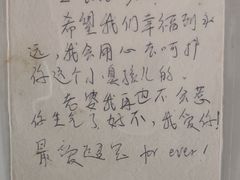 希望我们幸福到永
远,我会用心去呵护
你这个小臭孩儿的。
老婆我再也不会惹
你生气了好不,我爱你!
最爱 for ever!